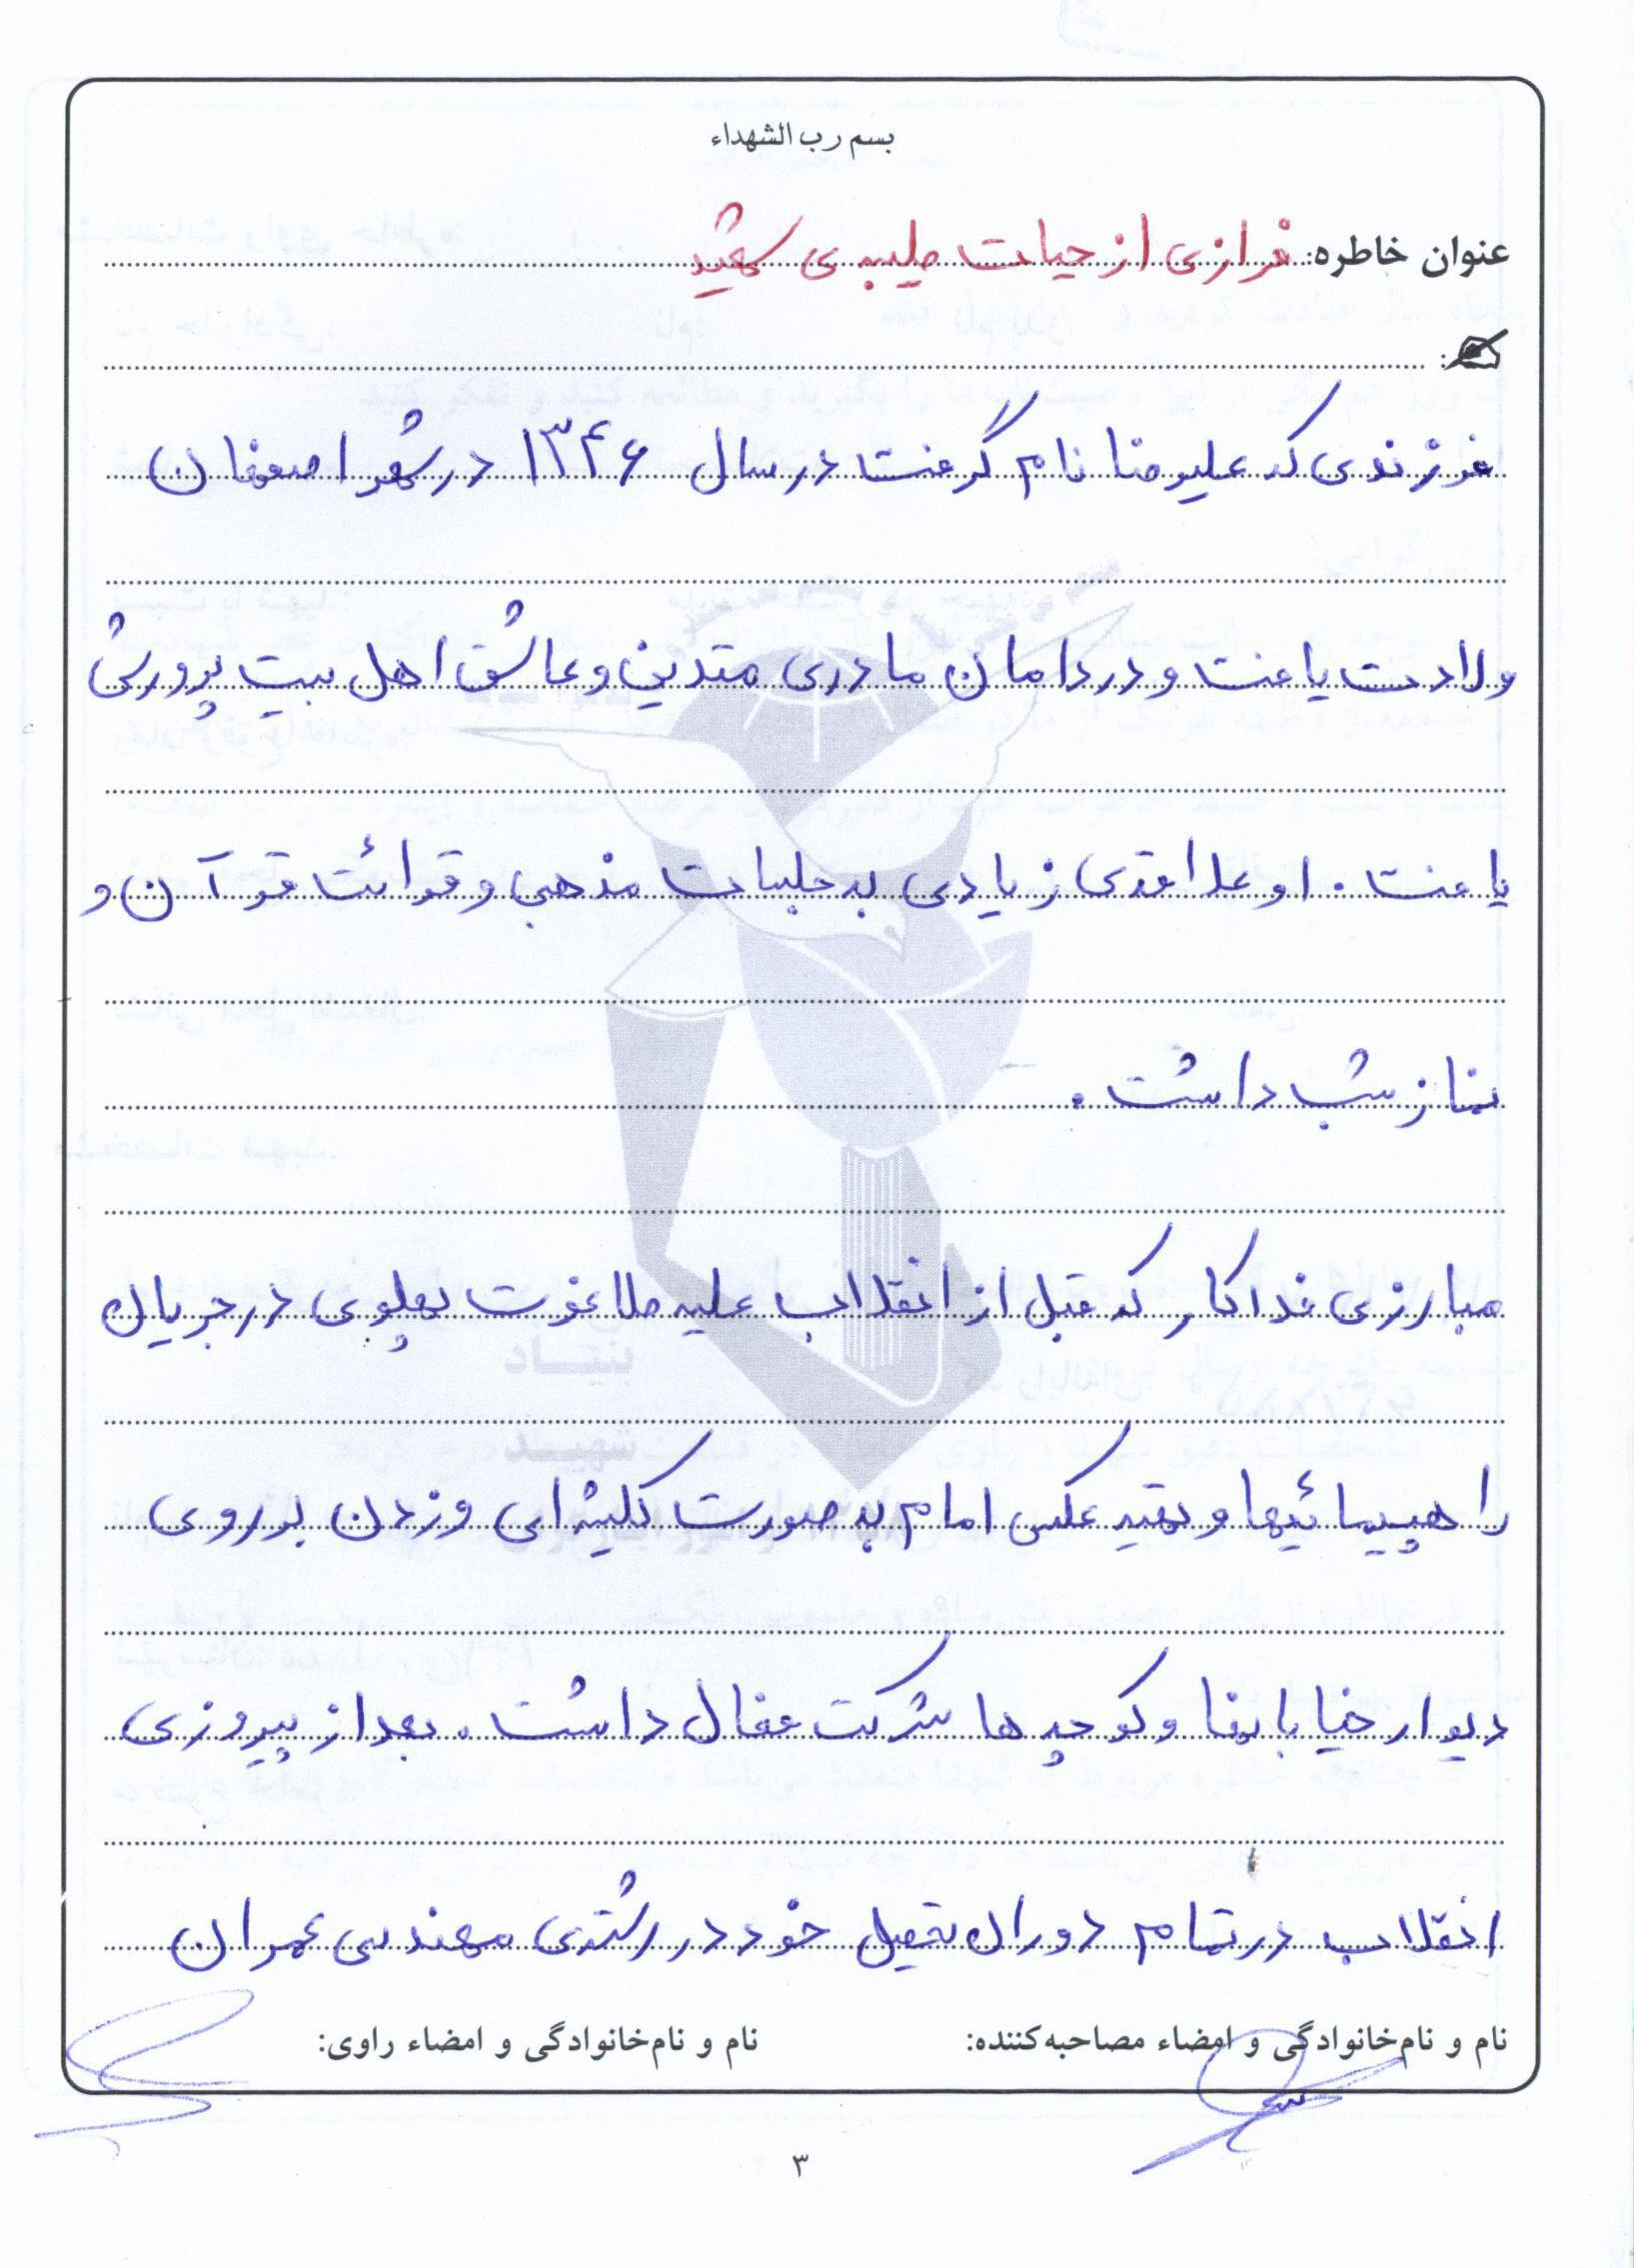 بسم رب الشهداء
عنوان خاطره: فرازی از حیات طیبه ی شهید
فرزندی که علیرضا نام گرفت در سال ۱۳۴۶ در شهر اصفهان
ولادت یافت و در دامان مادری متدین و عاشق اهل بیت پرورش
یافت. او علاقه‌ی زیادی به جلسات مذهبی و قرائت قرآن و
نماز شب داشت.
مبارزی فداکار که قبل از انقلاب علیه طاغوت پهلوی در جریان
راهپیمائیها و تهیه عکس امام به صورت کلیشه ای و زدن بر روی
دیوار خیابانها و کوچه ها شرکت فعال داشت. بعد از پیروزی
انقلاب در تمام دوران تحصیل خود در رشته‌ی مهندسی عمران
نام و نام‌خانوادگی و امضاء مصاحبه‌کننده: نام و نام‌خانوادگی و امضاء راوی:
۳